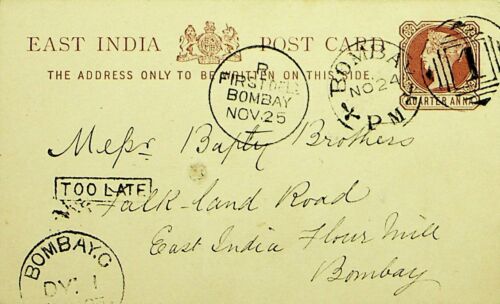 EAST INDIA POST CARD
THE ADDRESS ONLY TO BE WRITTEN ON THIS SIDE.
QUARTER ANNA
1
BOMBAY
NO 24
P.M
B
FIRST
BOMBAY
NOV.25
Messrs Bapty Brothers
TOO LATE
Falk-land Road
East India Flour Mill
Bombay
BOMBAY.G
DY. 1